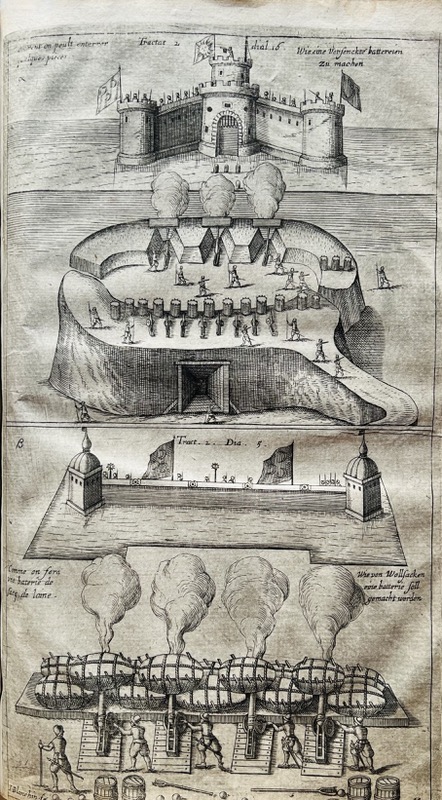 on peult enterrer
quelques pieces
Tractat 2
dial. 16
Wie eine Versenckte battereien
zu machen
B
Tract. 2. Dia. 5.
Comme on fera
vne baterie de
sacq de laine
Wie von Wollsacken
eine batterie soll
gemacht werden